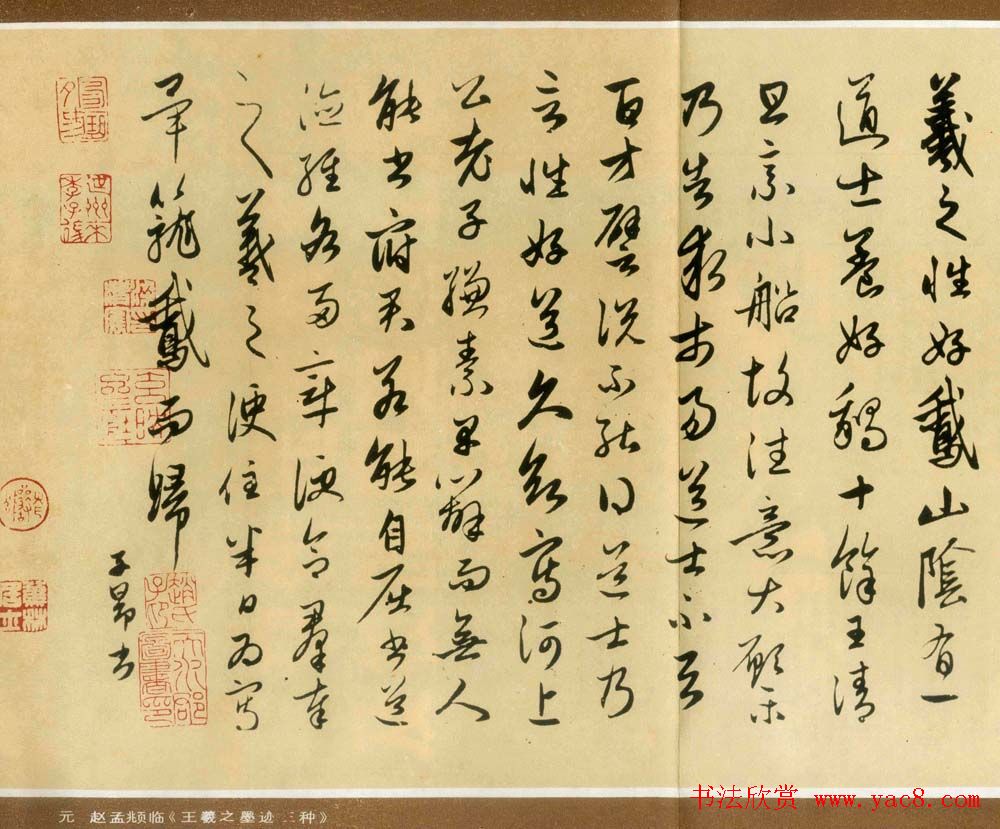 羲之性好鵞山陰有一
道士養好鵝十餘王清
旦乘小船故往意大願樂
乃告求市易道士不与
百方譬说不能得道士乃
言性好道久欲寫河上
公老子縑素早辦而無人
能書府君若能自屈書道
德經各兩章便合羣奉
之羲之便住半日為寫
畢籠鵞而歸
子昂書
趙氏子昂
元 赵孟頫临《王羲之墨迹三种》
书法欣赏 www.yac8.com